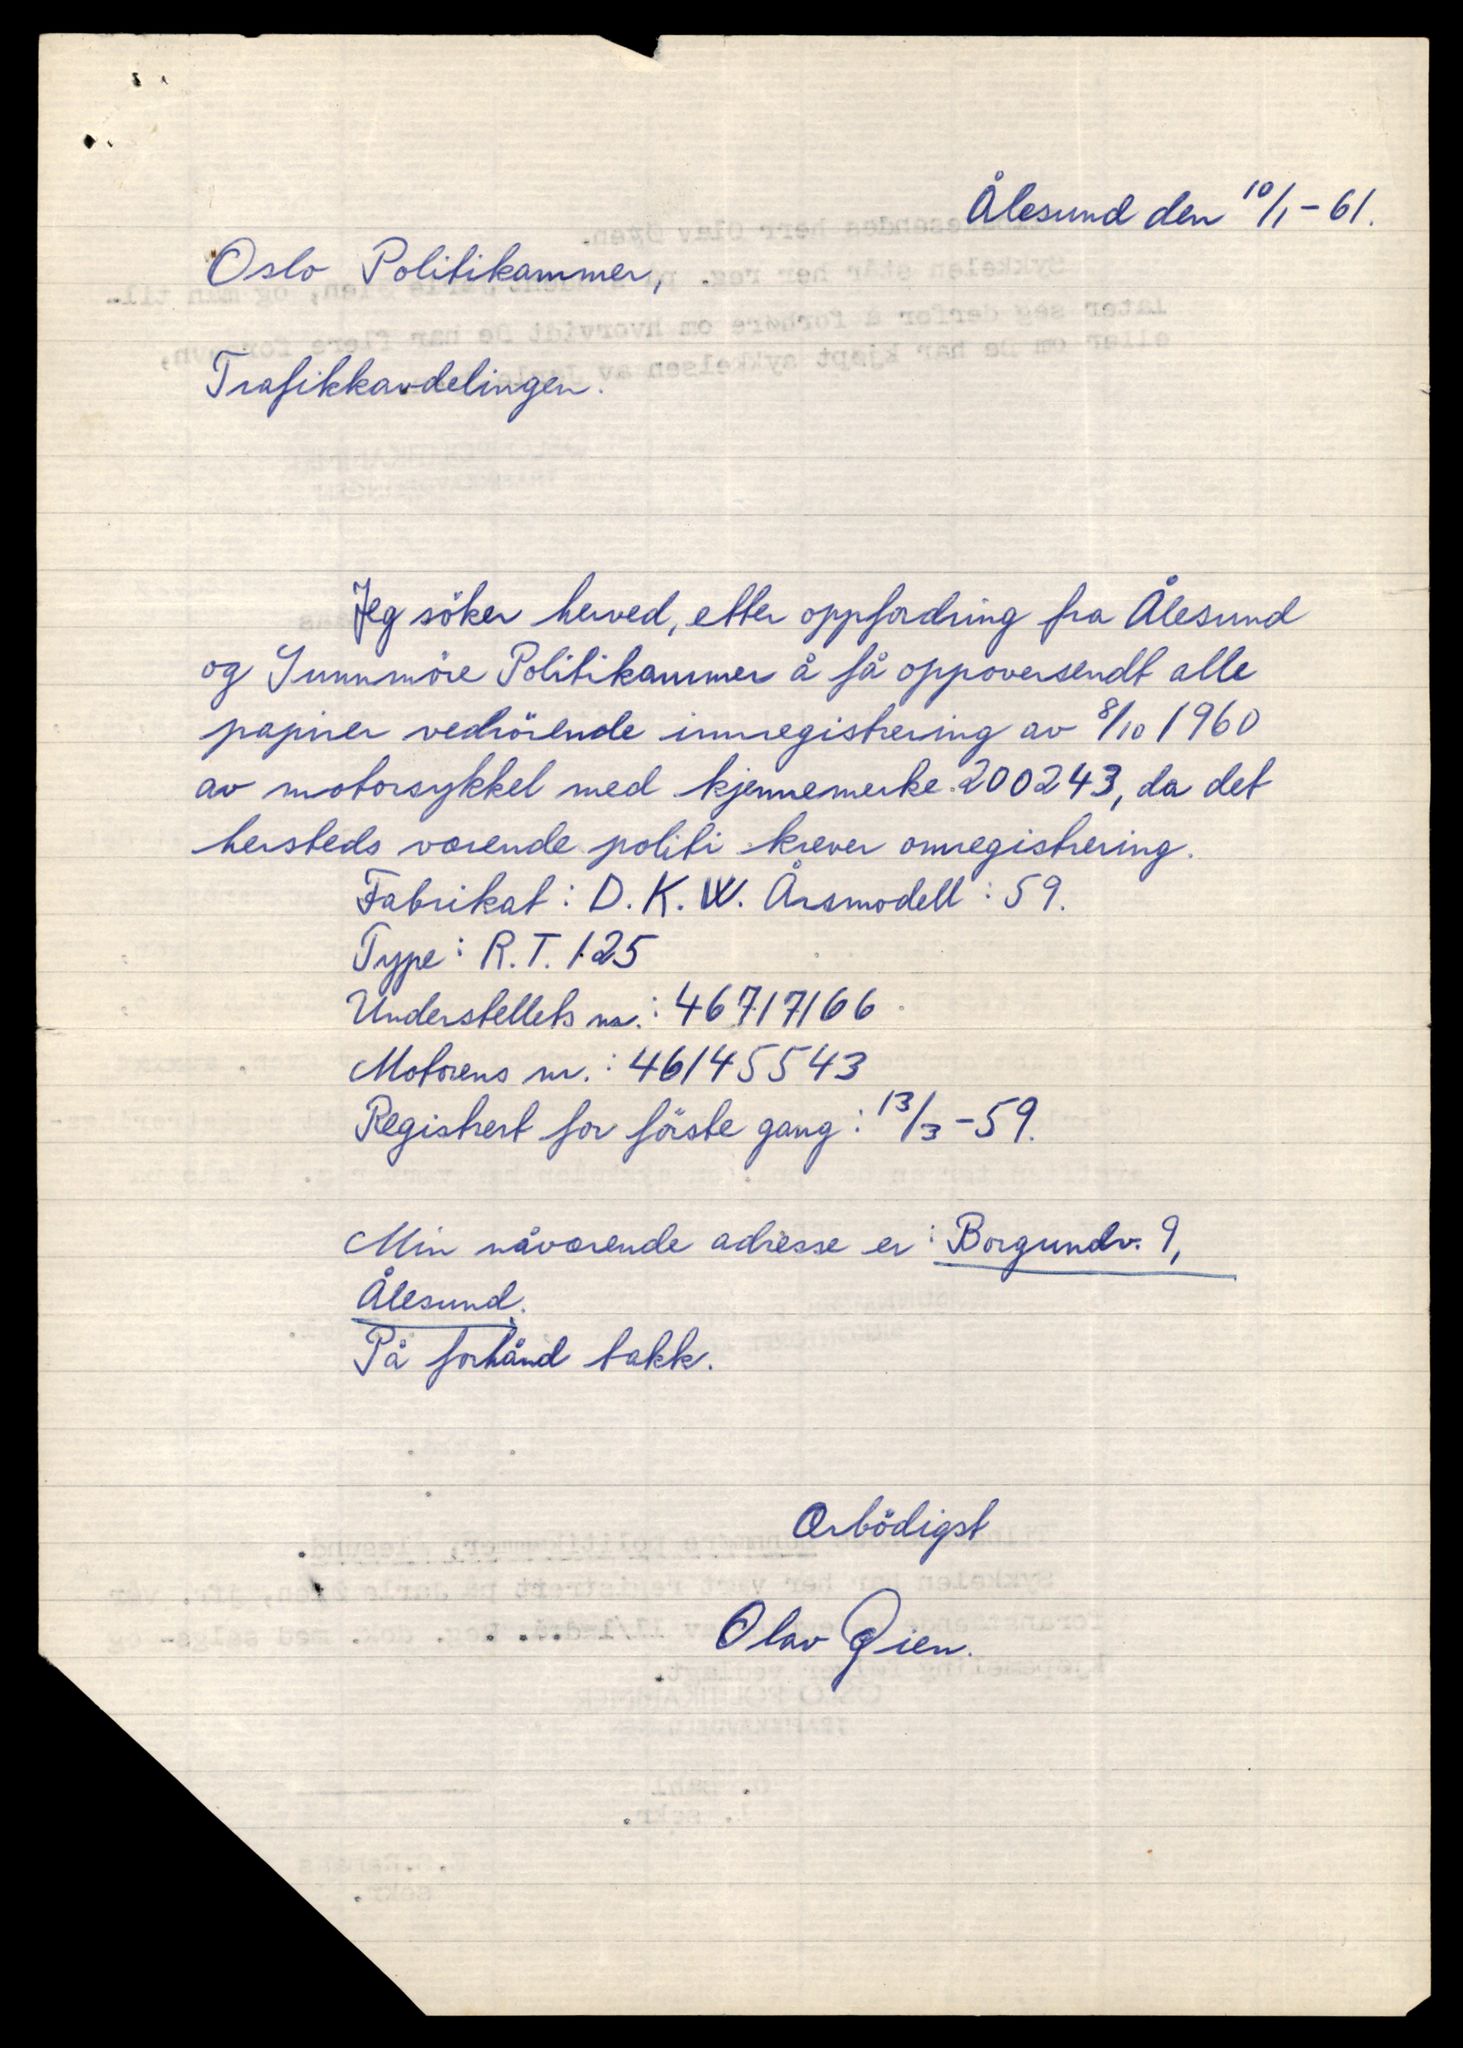 Ålesund den 10/1-61.
Oslo Politikammer,
Trafikkavdelingen.
Jeg söker herved, etter oppfordring fra Ålesund
og Sunnmöre Politikammer å få oppoversendt alle
papirer vedrörende innregistrering av 8/10 1960
av motorsykkel med kjennemerke 200243, da det
hersteds værende politi krever omregistrering.
Fabrikat: D.K.W. Årsmodell: 59.
Type: R.T. 125
Understellets nr.: 46717166
Motorens nr.: 46145543
Registrert for förste gang: 13/3-59.
Min nåværende adresse er: Borgundv. 9,
Ålesund.
På forhånd takk.
Ærbödigst
Olav Øien.